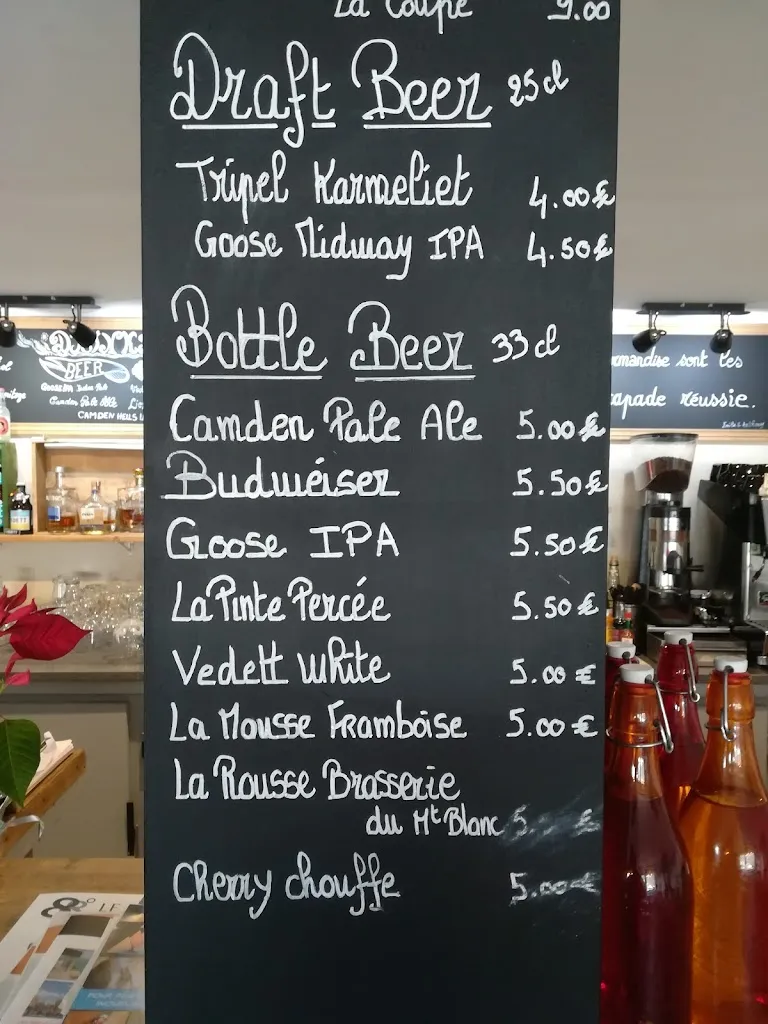 La Coupe 9.00
Draft Beer 25 cl
Tripel Karmeliet 4.00 €
Goose Midway IPA 4.50 €
Bottle Beer 33 cl
Camden Pale Ale 5.00 €
Budweiser 5.50 €
Goose IPA 5.50 €
La Pinte Percée 5.50 €
Vedett White 5.00 €
La Mousse Framboise 5.00 €
La Rousse Brasserie
du Mt Blanc 5. €
Cherry chouffe 5.00 €
BEER
Camden Pale Ale
CAMDEN HELLS
sont les
réussie.